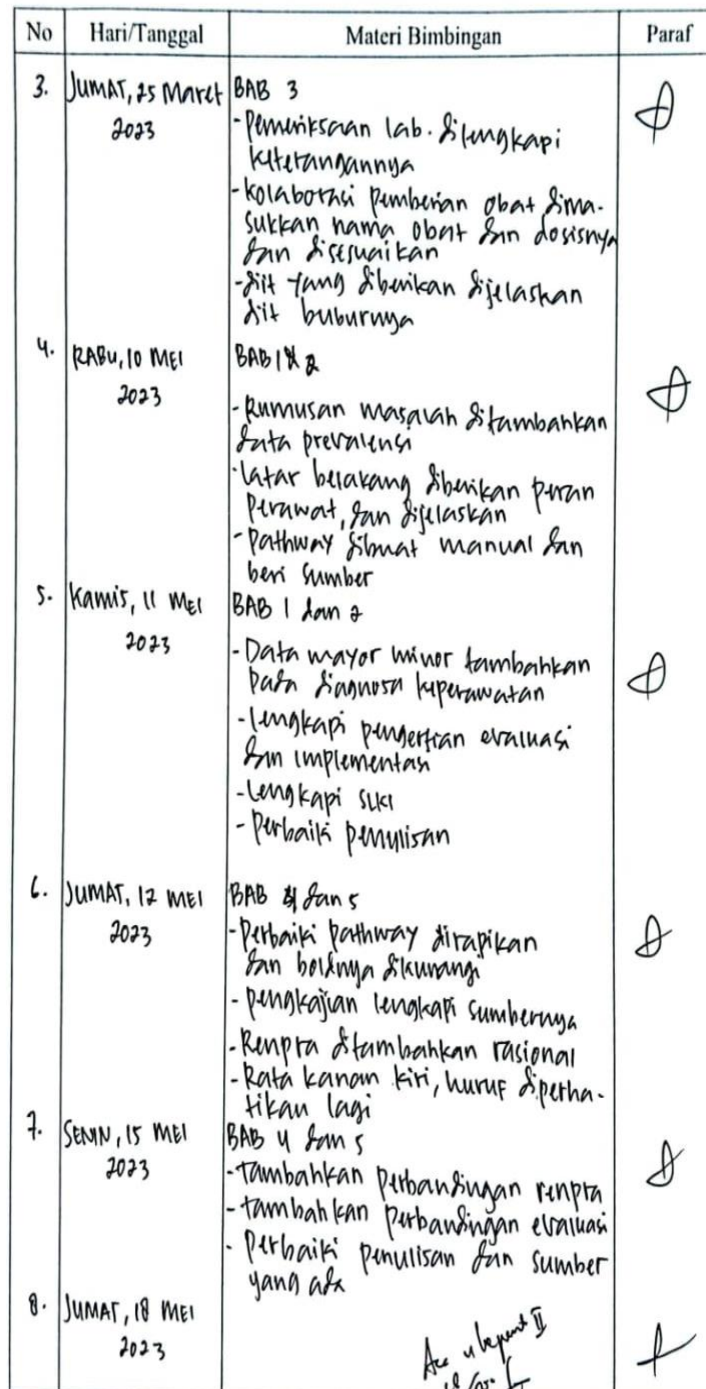 No Hari/Tanggal Materi Bimbingan Paraf
3. JUMAT, 25 Maret BAB 3
2023 -Pemeriksaan lab. dilengkapi
keterangannya
-kolaborasi pemberian obat dima-
sukkan nama obat dan dosisnya
dan disesuaikan
-diit yang diberikan dijelaskan
diit buburnya
4. RABU, 10 MEI BAB 1 & 2
2023
-Rumusan masalah ditambahkan
data prevalensi
-latar belakang diberikan peran
perawat, dan dijelaskan
-Pathway dibuat manual dan
beri sumber
5. Kamis, 11 MEI BAB 1 dan 2
2023
-Data mayor minor tambahkan
pada diagnosa keperawatan
-lengkapi pengertian evaluasi
dan implementasi
-lengkapi SLKI
-Perbaiki penulisan
6. JUMAT, 12 MEI BAB 4 dan 5
2023 -Perbaiki pathway dirapikan
dan boldnya dikurangi
-pengkajian lengkapi sumbernya
-Renpra ditambahkan rasional
-Rata kanan kiri, huruf diperha-
tikan lagi
7. SENIN, 15 MEI BAB 4 dan 5
2023 -tambahkan perbandingan renpra
-tambahkan perbandingan evaluasi
-Perbaiki penulisan dan sumber
yang ada
8. JUMAT, 18 MEI
2023 Acc